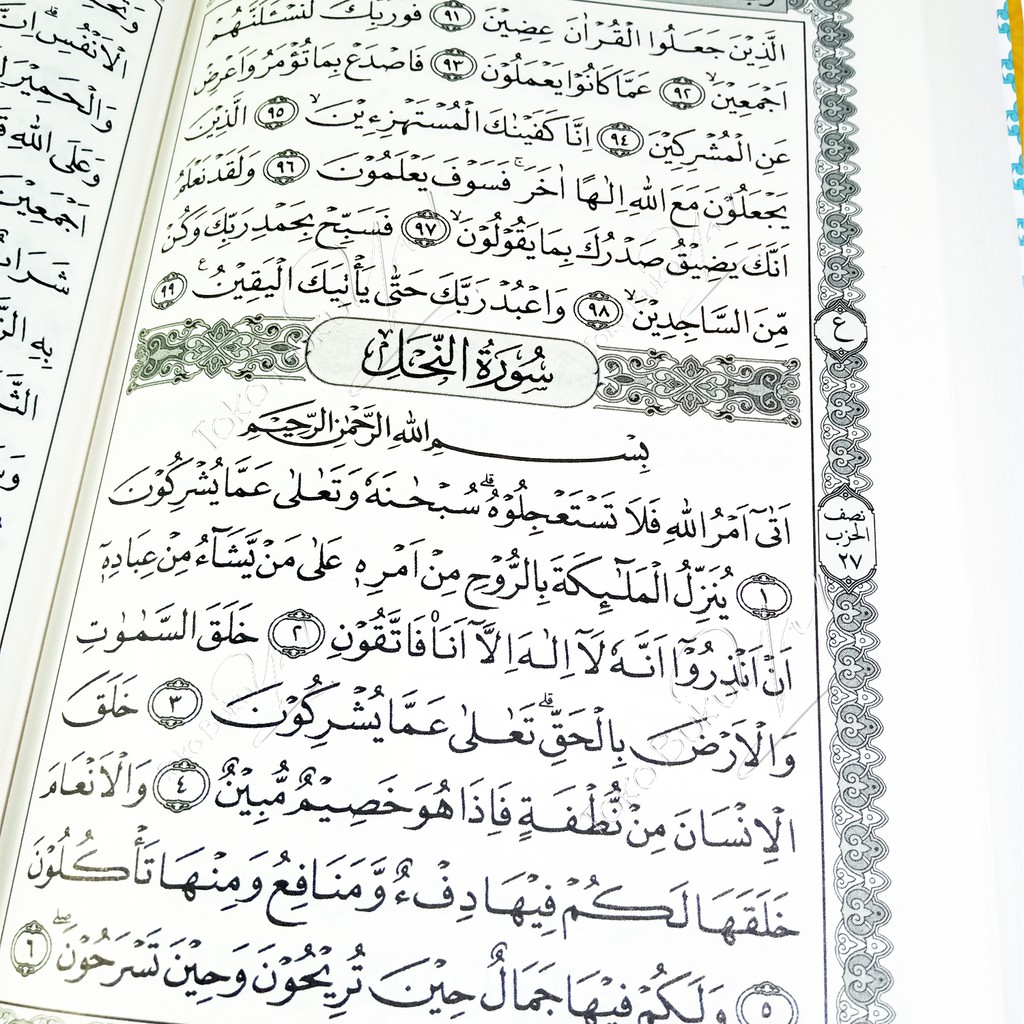 الَّذِيْنَ جَعَلُوا الْقُرْاٰنَ عِضِيْنَ ﴿٩١﴾ فَوَرَبِّكَ لَنَسْـَٔلَنَّهُمْ
اَجْمَعِيْنَۙ ﴿٩٢﴾ عَمَّا كَانُوْا يَعْمَلُوْنَ ﴿٩٣﴾ فَاصْدَعْ بِمَا تُؤْمَرُ وَاَعْرِضْ
عَنِ الْمُشْرِكِيْنَ ﴿٩٤﴾ اِنَّا كَفَيْنٰكَ الْمُسْتَهْزِءِيْنَۙ ﴿٩٥﴾ الَّذِيْنَ
يَجْعَلُوْنَ مَعَ اللّٰهِ اِلٰهًا اٰخَرَۚ فَسَوْفَ يَعْلَمُوْنَ ﴿٩٦﴾ وَلَقَدْ نَعْلَمُ
اَنَّكَ يَضِيْقُ صَدْرُكَ بِمَا يَقُوْلُوْنَۙ ﴿٩٧﴾ فَسَبِّحْ بِحَمْدِ رَبِّكَ وَكُنْ
مِّنَ السَّاجِدِيْنَۙ ﴿٩٨﴾ وَاعْبُدْ رَبَّكَ حَتّٰى يَأْتِيَكَ الْيَقِيْنُ ࣖ ﴿٩٩﴾
ع
سُوْرَةُ النَّحْلِ
بِسْمِ اللّٰهِ الرَّحْمٰنِ الرَّحِيْمِ
اَتٰىٓ اَمْرُ اللّٰهِ فَلَا تَسْتَعْجِلُوْهُ ۗ سُبْحٰنَهٗ وَتَعٰلٰى عَمَّا يُشْرِكُوْنَ
نصف
الحزب
٢٧
﴿١﴾ يُنَزِّلُ الْمَلٰۤىِٕكَةَ بِالرُّوْحِ مِنْ اَمْرِهٖ عَلٰى مَنْ يَّشَاۤءُ مِنْ عِبَادِهٖٓ
اَنْ اَنْذِرُوْٓا اَنَّهٗ لَآ اِلٰهَ اِلَّآ اَنَا۠ فَاتَّقُوْنِ ﴿٢﴾ خَلَقَ السَّمٰوٰتِ
وَالْاَرْضَ بِالْحَقِّۗ تَعٰلٰى عَمَّا يُشْرِكُوْنَ ﴿٣﴾ خَلَقَ
الْاِنْسَانَ مِنْ نُّطْفَةٍ فَاِذَا هُوَ خَصِيْمٌ مُّبِيْنٌ ﴿٤﴾ وَالْاَنْعَامَ
خَلَقَهَا لَكُمْ فِيْهَا دِفْءٌ وَّمَنَافِعُ وَمِنْهَا تَأْكُلُوْنَ
﴿٥﴾ وَلَكُمْ فِيْهَا جَمَالٌ حِيْنَ تُرِيْحُوْنَ وَحِيْنَ تَسْرَحُوْنَۖ ﴿٦﴾
الْاَنْفُسِ
وَالْحَمِيْرَ
وَعَلَى اللّٰهِ
اَجْمَعِيْنَ